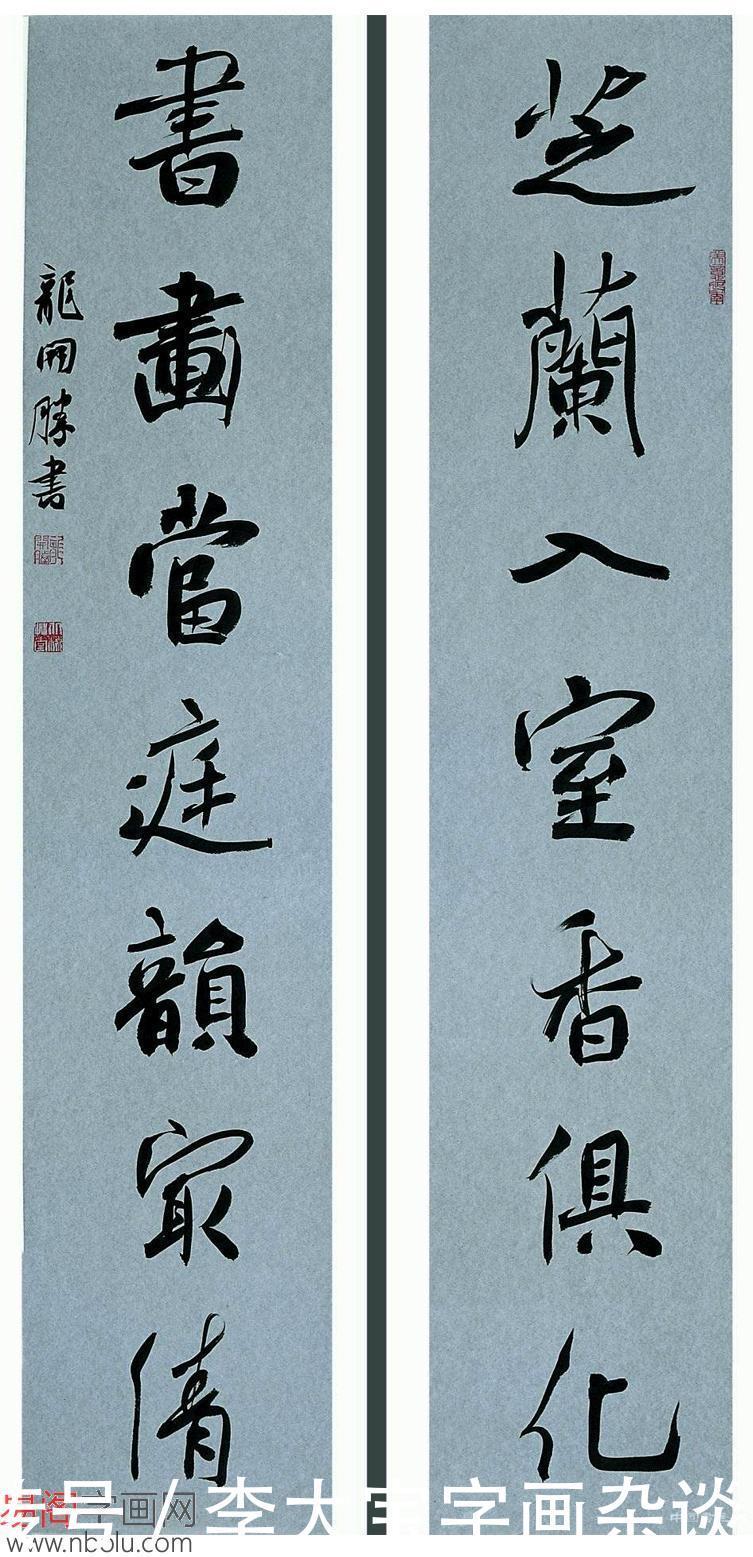 芝蘭入室香俱化
書畫當庭韻冣倩
龍開勝書
号/李大宝字画杂谈
易阁字画网
www.nbolu.com